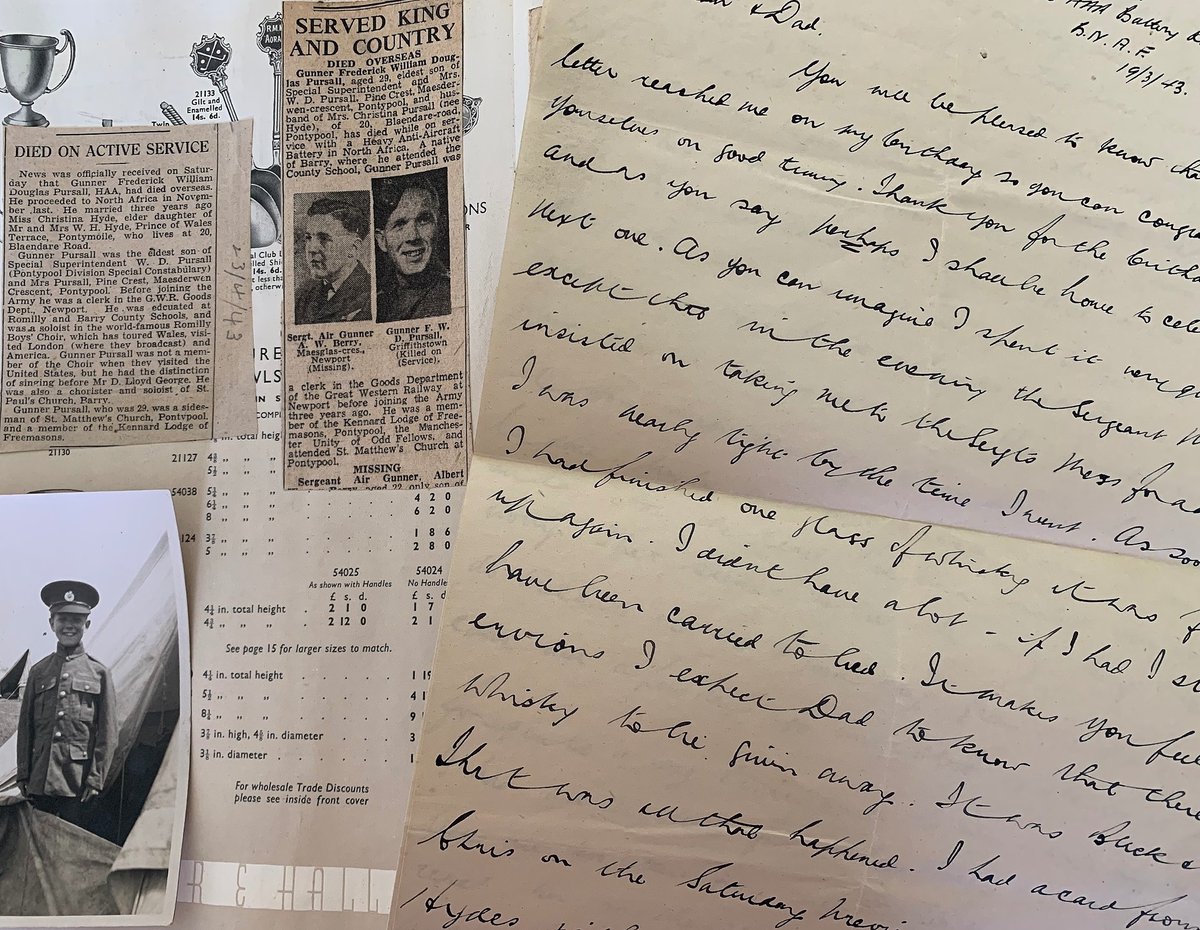 21133
Gilt and
Enamelled
14s. 6d.
DIED ON ACTIVE SERVICE
News was officially received on Satur-
day that Gunner Frederick William
Douglas Pursall, HAA, had died overseas.
He proceeded to North Africa in Novem-
ber last. He married three years ago
Miss Christina Hyde, elder daughter of
Mr and Mrs W. H. Hyde, Prince of Wales
Terrace, Pontymoile, who lives at 20,
Blaendare Road.
Gunner Pursall was the eldest son of
Special Superintendent W. D. Pursall
(Pontypool Division Special Constabulary)
and Mrs Pursall, Pine Crest, Maesderwen
Crescent, Pontypool. Before joining the
Army he was a clerk in the G.W.R. Goods
Dept., Newport. He was edcuated at
Romilly and Barry County Schools, and
was a soloist in the world-famous Romilly
Boys' Choir, which has toured Wales, visi-
ted London (where they broadcast) and
America. Gunner Pursall was not a mem-
ber of the Choir when they visited the
United States, but he had the distinction
of singing before Mr D. Lloyd George. He
was also a chorister and soloist of St.
Paul's Church, Barry.
Gunner Pursall, who was 29, was a sides-
man of St. Matthew's Church, Pontypool,
and a member of the Kennard Lodge of
Freemasons.
23/4/43
SERVED KING
AND COUNTRY
DIED OVERSEAS
Gunner Frederick William Doug-
las Pursall, aged 29, eldest son of
Special Superintendent and Mrs.
W. D. Pursall, Pine Crest, Maesder-
wen-crescent, Pontypool, and hus-
band of Mrs. Christina Pursall (nee
Hyde), of 20, Blaendare-road,
Pontypool, has died while on ser-
vice with a Heavy Anti-Aircraft
Battery in North Africa. A native
of Barry, where he attended the
County School, Gunner Pursall was
Sergt. Air Gunner
A. W. Berry,
Maesglas-cres.,
Newport
(Missing).
Gunner F. W.
D. Pursall,
Griffithstown
(Killed on
Service).
a clerk in the Goods Department
of the Great Western Railway at
Newport before joining the Army
three years ago. He was a mem-
ber of the Kennard Lodge of Free-
masons, Pontypool, the Manches-
ter Unity of Odd Fellows, and
attended St. Matthew's Church at
Pontypool.
MISSING
Sergeant Air Gunner, Albert
21130
21127
54038
124
4 2 0
6 2 0
1 8 6
2 8 0
54025 54024
As shown with Handles No Handle
£ s. d. £ s.
4¼ in. total height . 2 1 0 1 7
4¾ " " 2 12 0 2 1
See page 15 for larger sizes to match.
4¼ in. total height
5½ " "
8¼ " "
3⅞ in. high, 4⅝ in. diameter 3
3½ in. diameter 1
For wholesale Trade Discounts
please see inside front cover
& Dad.
AA Battery
B.N.A.F
19/3/43.
You will be pleased to know
letter reached me on my birthday so you can
yourselves on good timing. Thank you for the
and as you say perhaps I shall be home to
next one. As you can imagine I spent it very
except that in the evening the Sergeant
insisted on taking me to the Sergts Mess for a
I was nearly tight by the time I went. As soon
I had finished one glass of whisky it was
up again. I didn't have a lot - if I had I
have been carried to bed. It makes you feel
envious I expect Dad to know that there
Whisky to be given away. It was Black
That was all that happened. I had a card from
Chris on the Saturday
Hydes